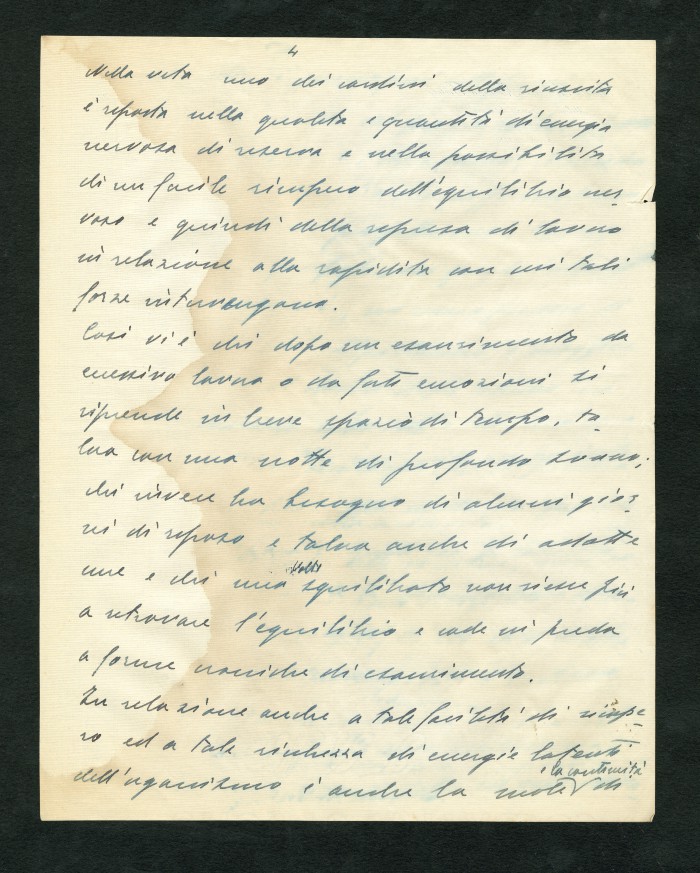 4
Nella vita uno dei cardini della riuscita
è riposta nella qualità e quantità di energia
nervosa di riserva e nella possibilità
di un facile ricupero dell'equilibrio ner-
voso e quindi della ripresa di lavoro
in relazione alla rapidità con cui tali
forze intervengono.
Così vi è chi dopo un esaurimento da
eccessivo lavoro o da forti emozioni si
riprende in breve spazio di tempo, ta-
lora con una notte di profondo sonno;
chi invece ha bisogno di alcuni gior-
ni di riposo e talora anche di adatte
cure e chi una volta squilibrato non riesce più
a ritrovare l'equilibrio e cade in preda
a forme croniche di esaurimento.
In relazione anche a tale facilità di ricupe-
ro ed a tale ricchezza di energie latenti
dell'organismo è anche la mole e la continuità di